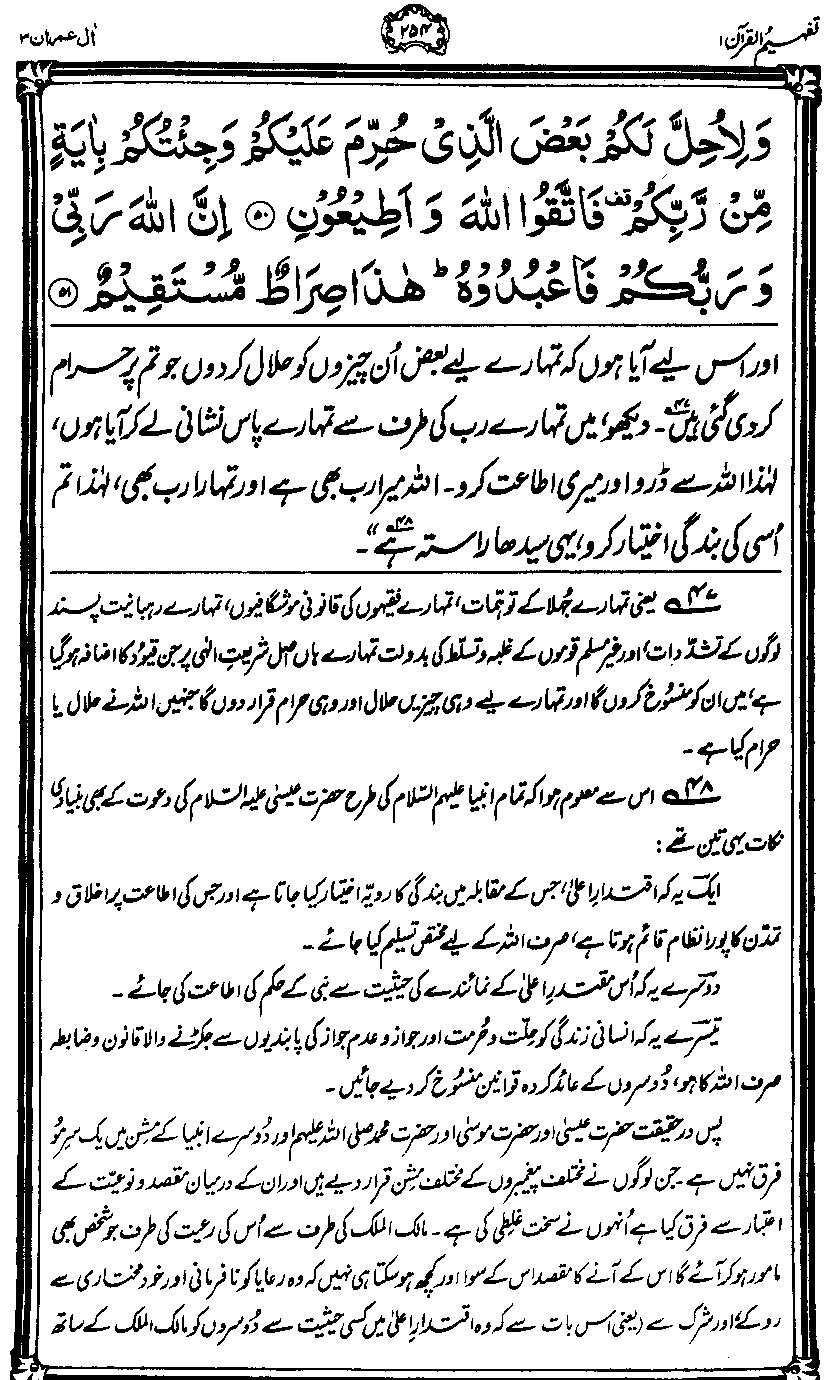 تفہیم القرآن ۱
۲۵۴
اٰل عمران ۳
وَلِاُحِلَّ لَكُمْ بَعْضَ الَّذِیْ حُرِّمَ عَلَیْكُمْ وَجِئْتُكُمْ بِاٰیَةٍ
مِّنْ رَّبِّكُمْ قف فَاتَّقُوا اللّٰهَ وَاَطِیْعُوْنِ ﴿۵۰﴾ اِنَّ اللّٰهَ رَبِّیْ
وَرَبُّكُمْ فَاعْبُدُوْهُ ؕ هٰذَا صِرَاطٌ مُّسْتَقِیْمٌ ﴿۵۱﴾
اور اس لیے آیا ہوں کہ تمہارے لیے بعض اُن چیزوں کو حلال کر دوں جو تم پر حرام
کر دی گئی ہیں۴۷۔ دیکھو، میں تمہارے رب کی طرف سے تمہارے پاس نشانی لے کر آیا ہوں،
لہٰذا اللہ سے ڈرو اور میری اطاعت کرو۔ اللہ میرا رب بھی ہے اور تمہارا رب بھی، لہٰذا تم
اُسی کی بندگی اختیار کرو، یہی سیدھا راستہ ہے۴۸“۔
۴۷ یعنی تمہارے جُہلا کے توہّمات، تمہارے فقیہوں کی قانونی موشگافیوں، تمہارے رہبانیت پسند
لوگوں کے تشدّدات، اور غیر مسلم قوموں کے غلبہ و تسلط کی بدولت تمہارے ہاں اصل شریعتِ الٰہی پر جن قیود کا اضافہ ہو گیا
ہے، میں ان کو منسُوخ کروں گا اور تمہارے لیے وہی چیزیں حلال اور وہی حرام قرار دوں گا جنہیں اللہ نے حلال یا
حرام کیا ہے۔
۴۸ اس سے معلوم ہوا کہ تمام انبیا علیہم السّلام کی طرح حضرت عیسیٰ علیہ السّلام کی دعوت کے بھی بنیادی
نکات یہی تین تھے:
ایک یہ کہ اقتدارِ اعلیٰ، جس کے مقابلہ میں بندگی کا رویّہ اختیار کیا جاتا ہے اور جس کی اطاعت پر اخلاق و
تمدّن کا پورا نظام قائم ہوتا ہے، صرف اللہ کے لیے مختص تسلیم کیا جائے۔
دوسرے یہ کہ اُس مقتدرِ اعلیٰ کے نمائندے کی حیثیت سے نبی کے حکم کی اطاعت کی جائے۔
تیسرے یہ کہ انسانی زندگی کو حِلّت و حُرمت اور جواز و عدم جواز کی پابندیوں سے جکڑنے والا قانون و ضابطہ
صرف اللہ کا ہو، دُوسروں کے عائد کردہ قوانین منسُوخ کر دیے جائیں۔
پس درحقیقت حضرت عیسیٰ اور حضرت موسیٰ اور حضرت محمد صلی اللہ علیہم اور دُوسرے انبیا کے مشن میں یک سرِ مُو
فرق نہیں ہے۔ جن لوگوں نے مختلف پیغمبروں کے مختلف مشن قرار دیے ہیں اور ان کے درمیان مقصد و نوعیّت کے
اعتبار سے فرق کیا ہے اُنہوں نے سخت غلطی کی ہے۔ مالک الملک کی طرف سے اُس کی رعیت کی طرف جو شخص بھی
مامور ہو کر آئے گا اس کے آنے کا مقصد اس کے سوا اور کچھ ہو سکتا ہی نہیں کہ وہ رعایا کو نافرمانی اور خود مختاری سے
روکے، اور شرک سے (یعنی اس بات سے کہ وہ اقتدارِ اعلیٰ میں کسی حیثیت سے دُوسروں کو مالک الملک کے ساتھ